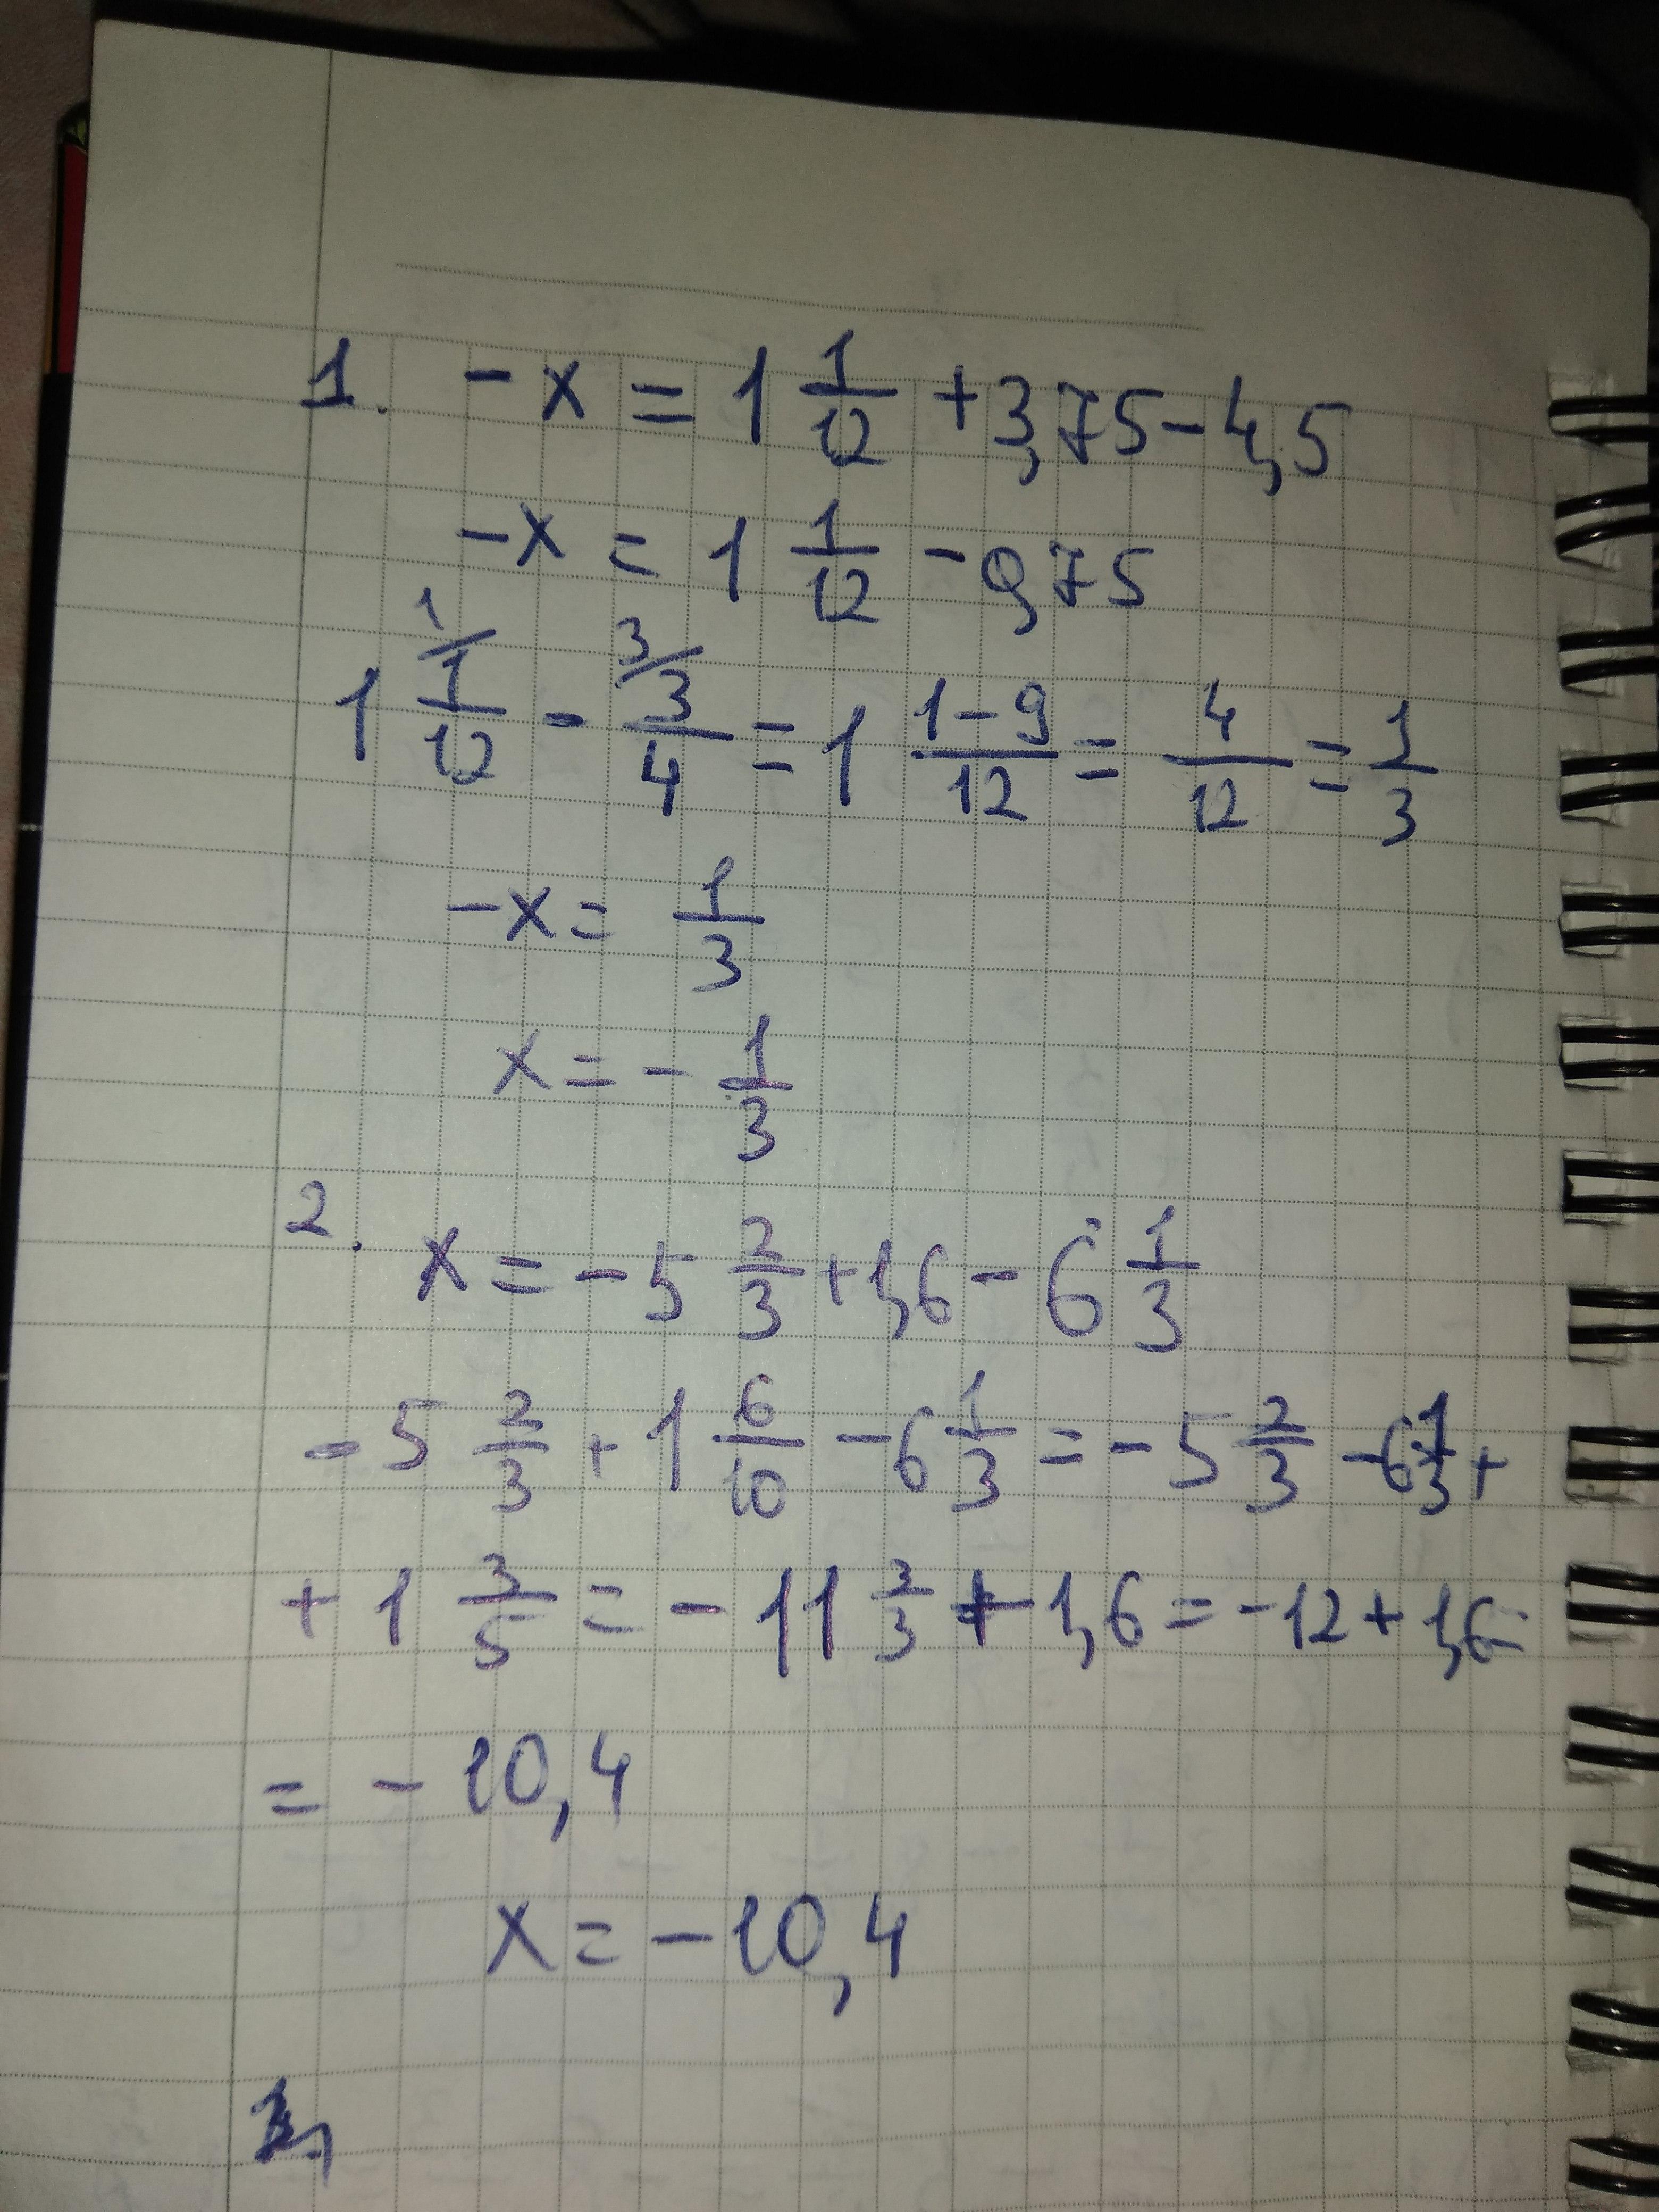 1. -x = 1 1/12 + 3,75 - 4,5
-x = 1 1/12 - 0,75
1 1/12 - 3/4 = 1 (1-9)/12 = 4/12 = 1/3
-x = 1/3
x = - 1/3
2. x = -5 2/3 + 1,6 - 6 1/3
-5 2/3 + 1 6/10 - 6 1/3 = -5 2/3 - 6 1/3 +
+ 1 3/5 = -11 3/3 + 1,6 = -12 + 1,6 =
= -10,4
x = -10,4